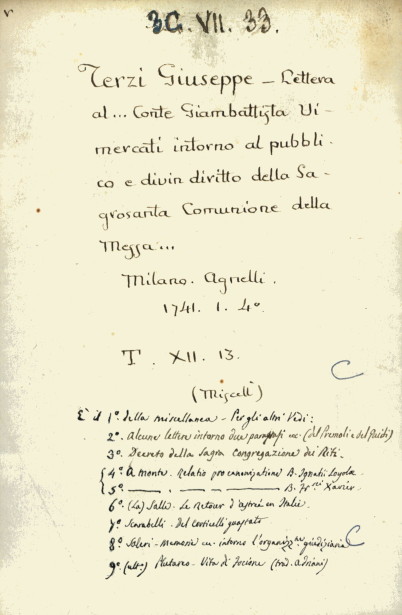 3G. VII. 33.
Terzi Giuseppe – Lettera
al... Conte Giambattista Vi-
mercati intorno al pubbli-
co e divin diritto della Sa-
grosanta Comunione della
Messa...
Milano. Agnelli.
1741. 1. 4º
T. XII. 13.
(Miscell.)
È il 1º della miscellanea – Per gli altri Vedi:
2º Alcune lettere intorno due paragrafi ec. (del Premoli e del Guidi)
3º Decreto della Sagra Congregazione dei Riti.
4º A Monte. Relatio pro canonizatione B. Ignatii Loyolæ
5º — , — — — B. Fr.ci Xavier.
6º (La) Salle. Le Retour d'Astrée en Italie.
7º Scarabelli. Del corticelli guastato
8º Soleri – Memoria ec. intorno l'organizz.ne giudiziaria
9º (altro) Plutarco – Vita di Focione (trad. Adriani)